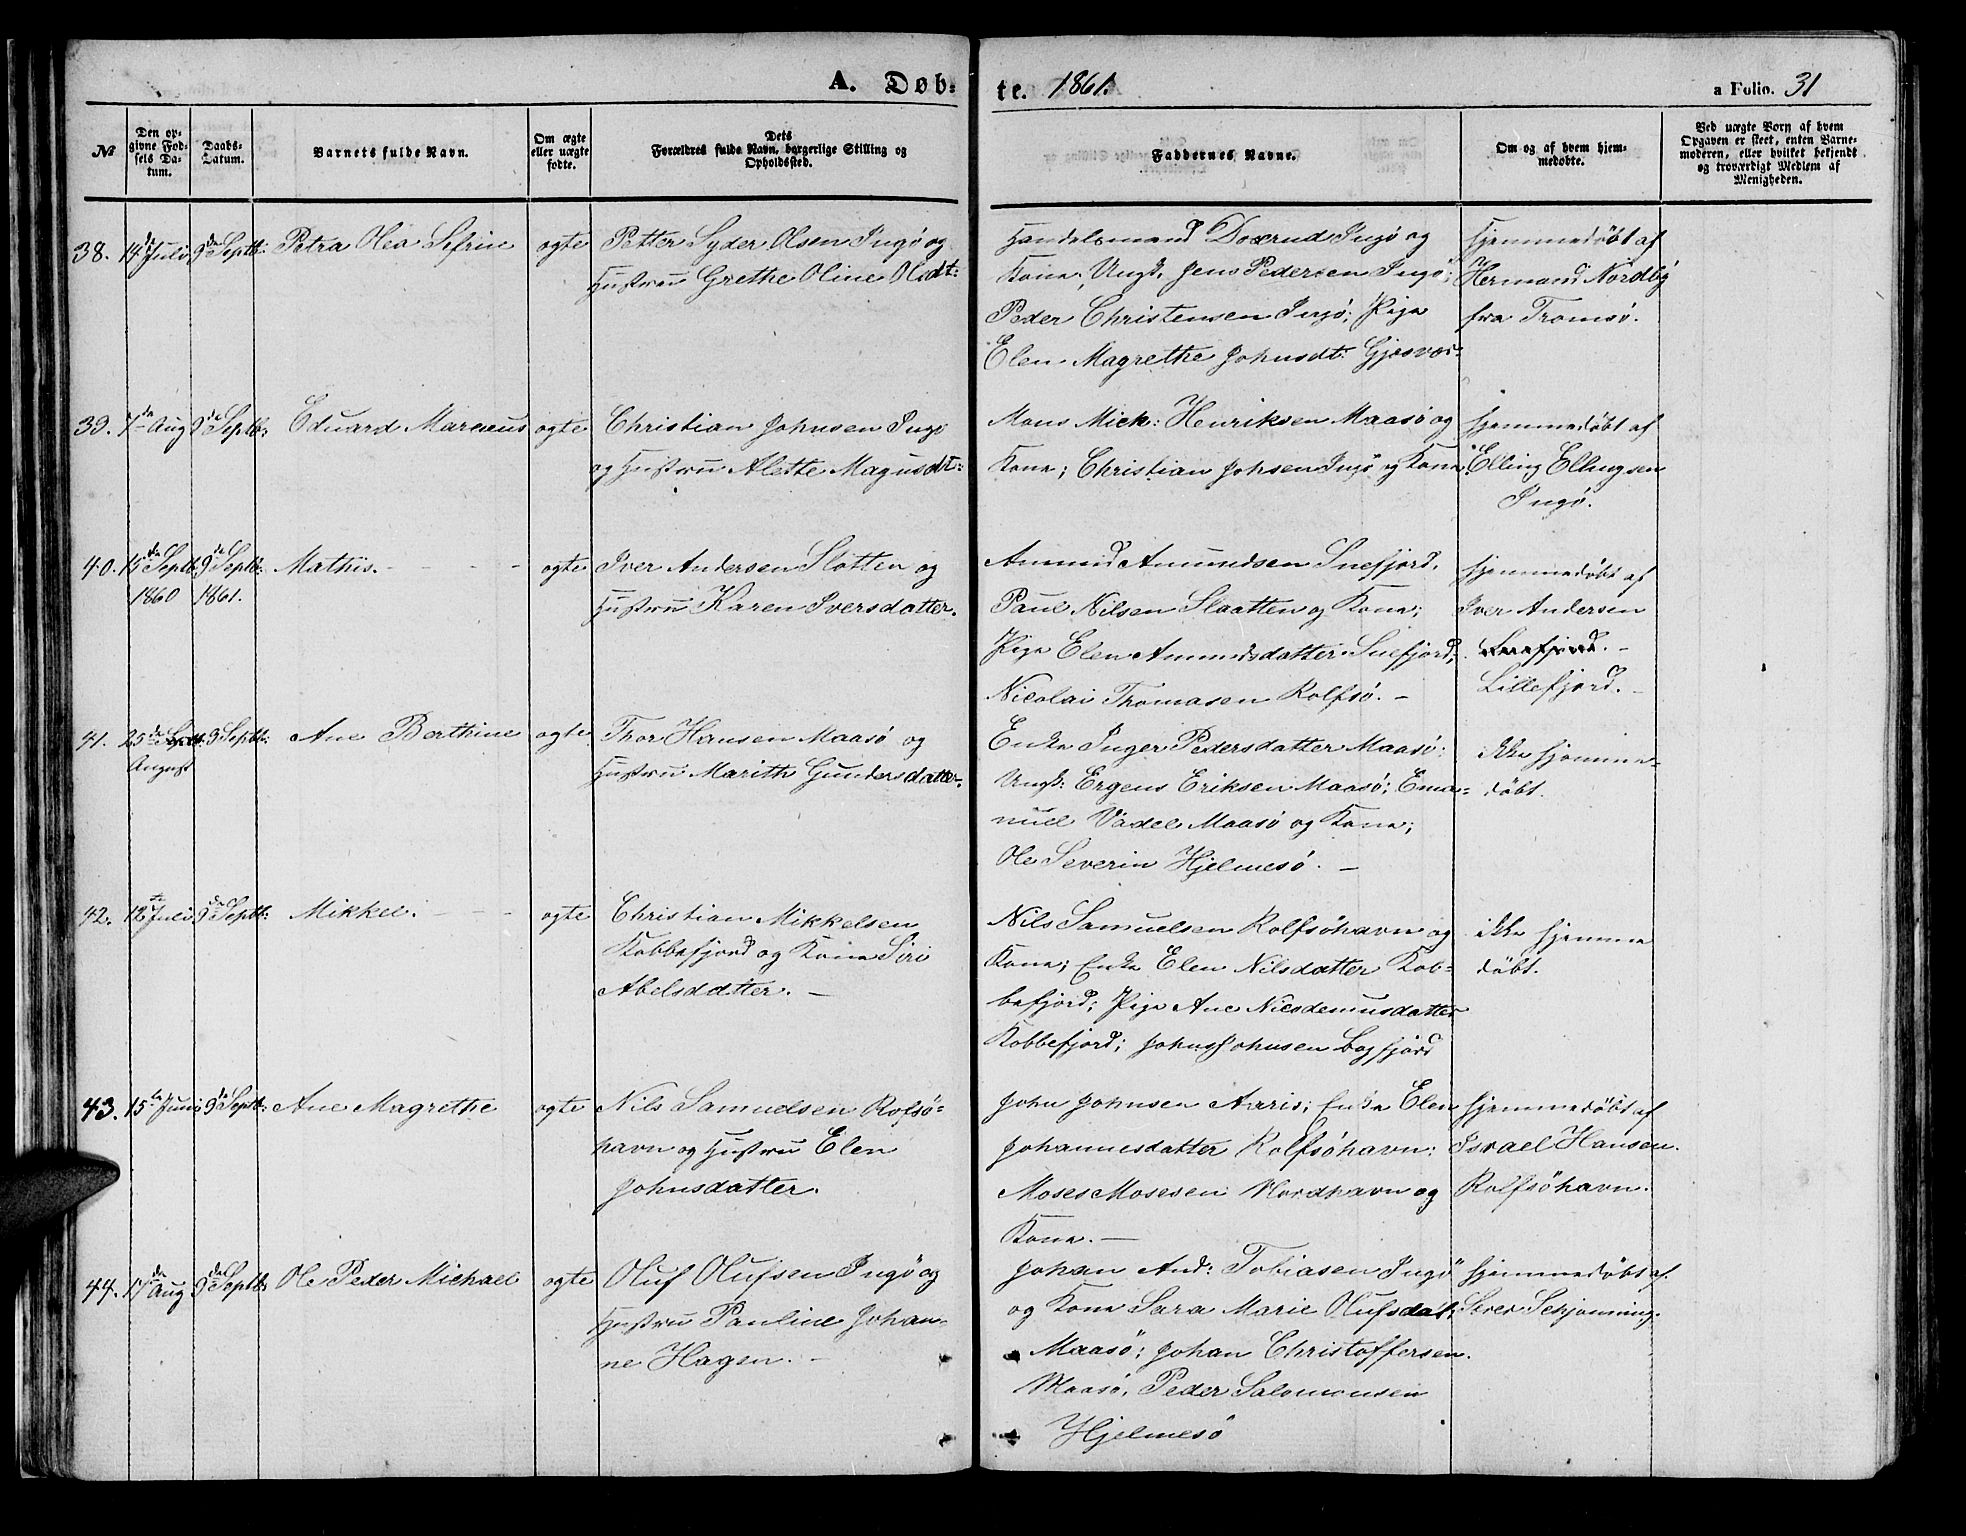 A. Døb-
te. 1861.
a Folio. 31
№
Den opgivne Fødsels Datum.
Daabs-Datum.
Barnets fulde Navn.
Om ægte eller uægte fødte.
Dets Forældres fulde Navn, borgerlige Stilling og Opholdssted.
Faddernes Navne.
Om og af hvem hjemmedøbte.
Ved uægte Børn af hvem Opgaven er skeet, enten Barnemoderen, eller hvilket bekjendt og troværdigt Medlem af Menigheden.
38. 14de Juli 9de Septb: Petra Olea Sefrine ogte
Petter Syder Olsen Ingø og
Hustru Grethe Oline Olsdt:
Handelsmand Doxrud Ingø og
Kone, Ungk. Jens Pedersen Ingø;
Peder Christensen Ingø; Pige
Elen Magrethe Johnsdt: Gjesvær-
Hjemmedøbt af
Hermand Nordby
fra Tromsø.
39. 7de Aug 9de Septb: Eduard Marcus ogte
Christian Johnsen Ingø
og Hustru Alette Magusdt:
Mons Mick: Henriksen Maasø og
Kone; Christian Johsen Ingø og Kone
Hjemmedøbt af
Elling Ellingsen
Ingø.
40. 15de Septb: 1860 9de Septb: 1861. Mathis. ogte
Iver Andersen Slotten og
Hustru Karen Iversdatter.
Amund Amundsen Snefjord,
Paul Nilsen Slaatten og Kone;
Pige Elen Amundsdatter Snefjord;
Nicolai Thomasen Rolfsø. -
Hjemmedøbt af
Iver Andersen
Snefjord. -
Lillefjord. -
41. 25de Septb: August 9 Septb: Ane Berthine ogte
Thor Hansen Maasø og
Hustru Marith Gundersdatter.
Enke Inger Pedersdatter Maasø:
Ungk: Ergens Eriksen Maasø; Ema-
nuel Vadel Maasø og Kone;
Ole Severin Hjelmesø. -
ikke hjemme-
døbt.
42. 12te Juli 9de Septb: Mikkel. ogte
Christian Mikkelsen
Kobbefjord og Kone Siri
Abelsdatter. -
Nils Samuelsen Rolfsøhavn og
Kone; Enke Elen Nilsdatter Kob-
befjord; Pige Ane Nicodemusdatter
Kobbefjord; Johns Johnsen Bogfjord
ikke hjemme
døbt.
43. 15de Juni 9de Septb: Ane Magrethe ogte
Nils Samuelsen Rolfsø-
havn og Hustru Elen
Johnsdatter.
John Johnsen Arris; Enke Elen
Johannesdatter Rolfsøhavn:
Moses Mosesen Nordhavn og
Kone. -
Hjemmedøbt af
Israel Hansen.
Rolfsøhavn.
44. 17de Aug 9de Septb: Ole Peder Michael ogte
Oluf Olufsen Ingø og
Hustru Pauline Johan-
ne Hagen. -
Johan And: Tobiasen Ingø
og Kone Sara Marie Olufsdat:
Maasø; Johan Christoffersen.
Maasø; Peder Salomonsen
Hjelmesø
Hjemmedøbt af.
Sever Schjønning.